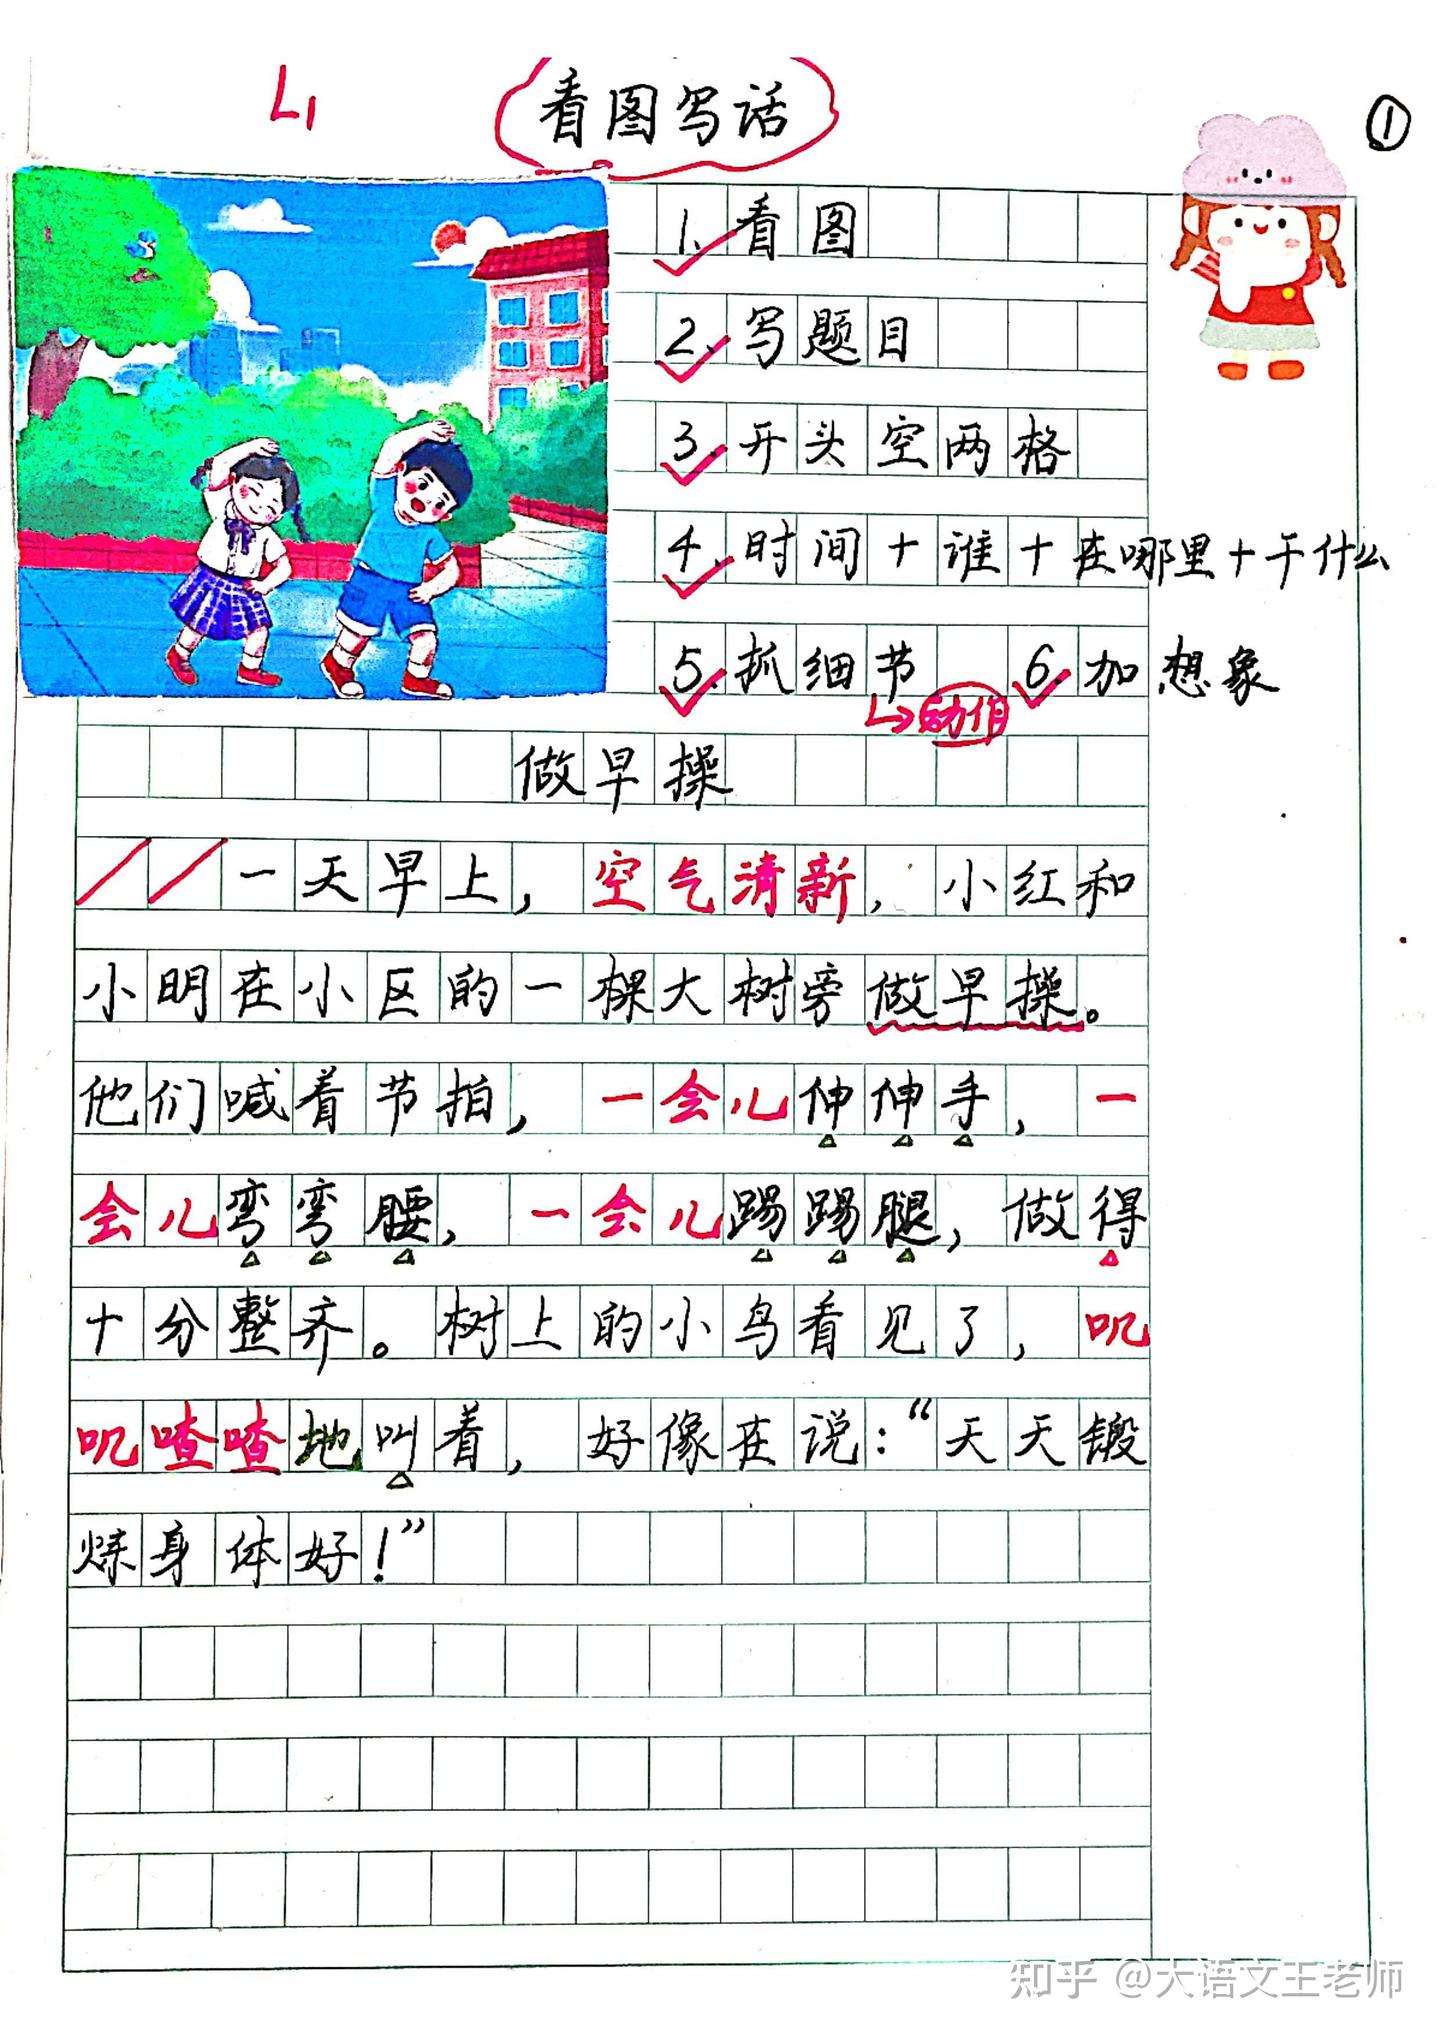 L1
看图写话
①
1.看图
2.写题目
3.开头空两格
4.时间+谁+在哪里+干什么
5.抓细节 6.加想象
动作
做早操
一天早上，空气清新，小红和
小明在小区的一棵大树旁做早操。
他们喊着节拍，一会儿伸伸手，一
会儿弯弯腰，一会儿踢踢腿，做得
十分整齐。树上的小鸟看见了，叽
叽喳喳地叫着，好像在说：“天天锻
炼身体好！”
知乎 @大语文王老师